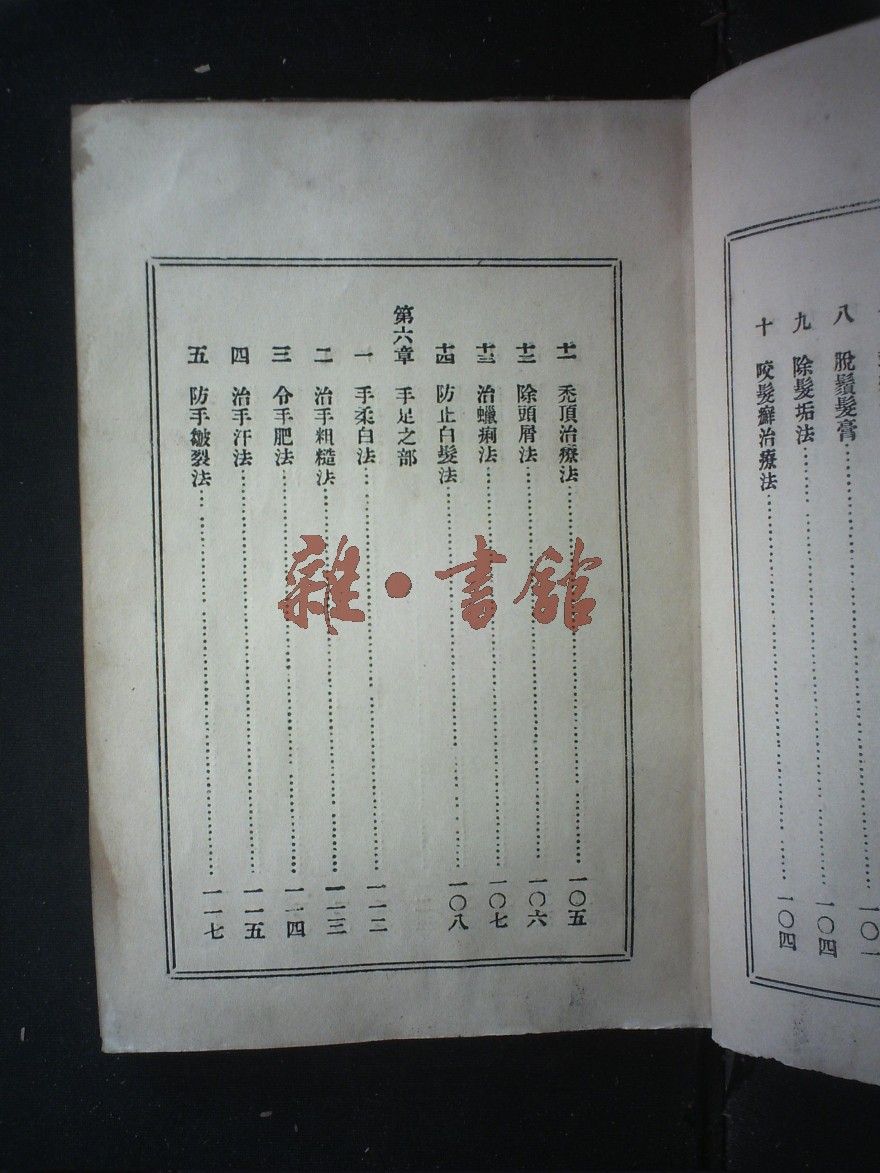 八 脫鬚髮膏 一〇一
九 除髮垢法 一〇四
十 咬髮癬治療法 一〇四
十一 禿頂治療法 一〇五
十二 除頭屑法 一〇六
十三 治蠟痢法 一〇七
十四 防止白髮法 一〇八
第六章 手足之部
一 手柔白法 一一二
二 治手粗糙法 一一三
三 令手肥法 一一四
四 治手汗法 一一五
五 防手皴裂法 一一七
雜·書館